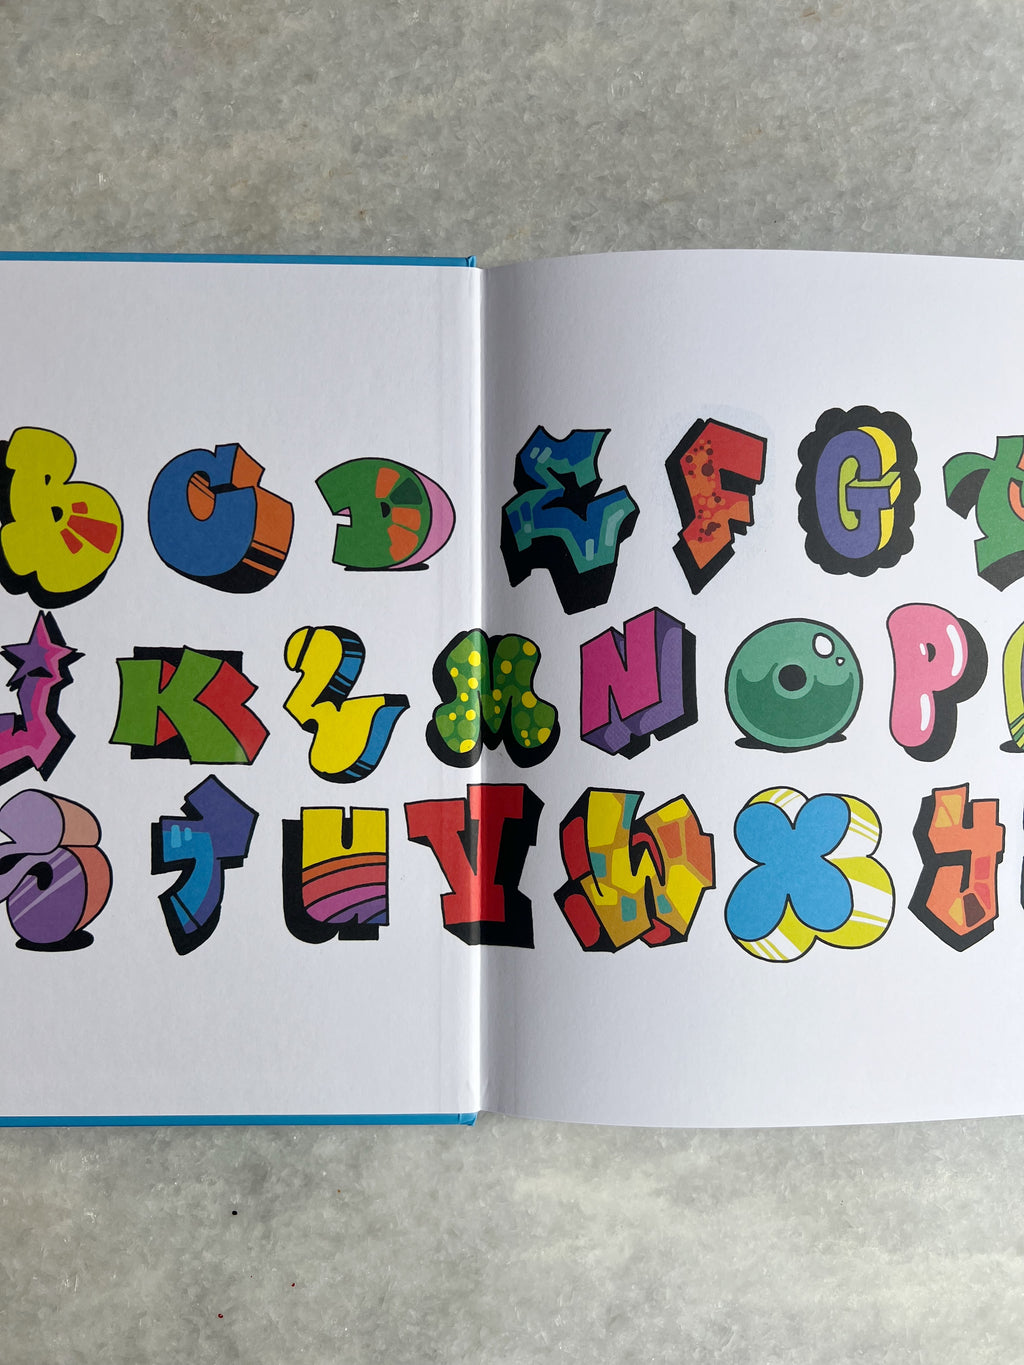 B C D E F G
J K L M N O P
S T U V W X Y